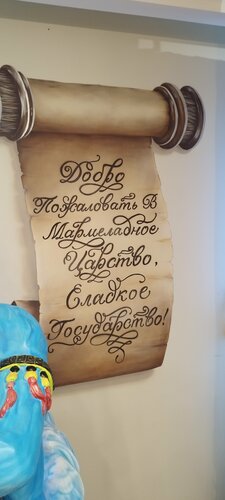 Добро
Пожаловать В
Мармеладное
Царство,
Сладкое
Государство!